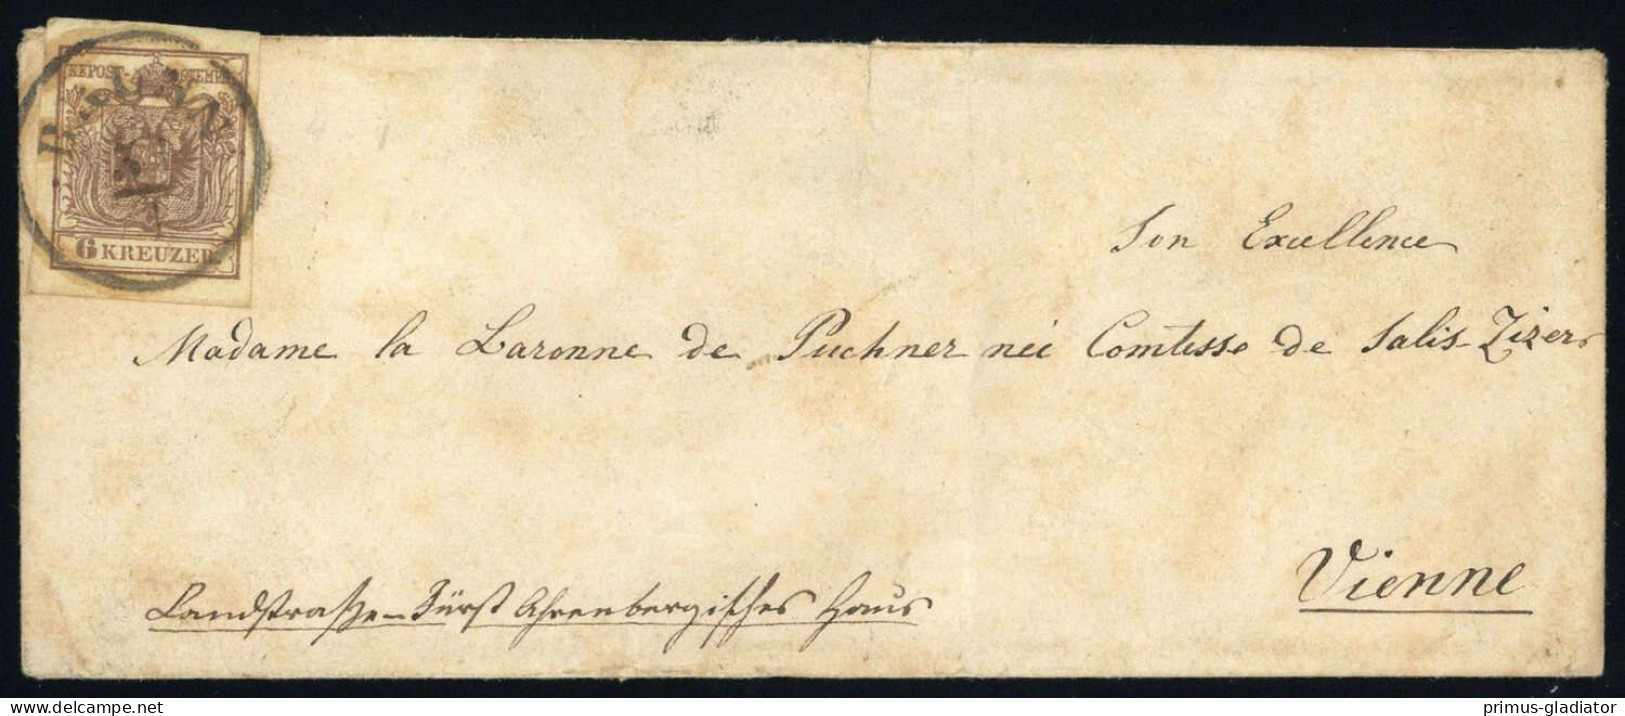 KKPOST-STEMPEL
BRÜNN
6 KREUZER
Son Excellence
Madame la Baronne de Puchner neé Comtesse de Salis-Zizers
Vienne
Landstraße - Fürst Ahrenbergisches Haus
primus-gladiator